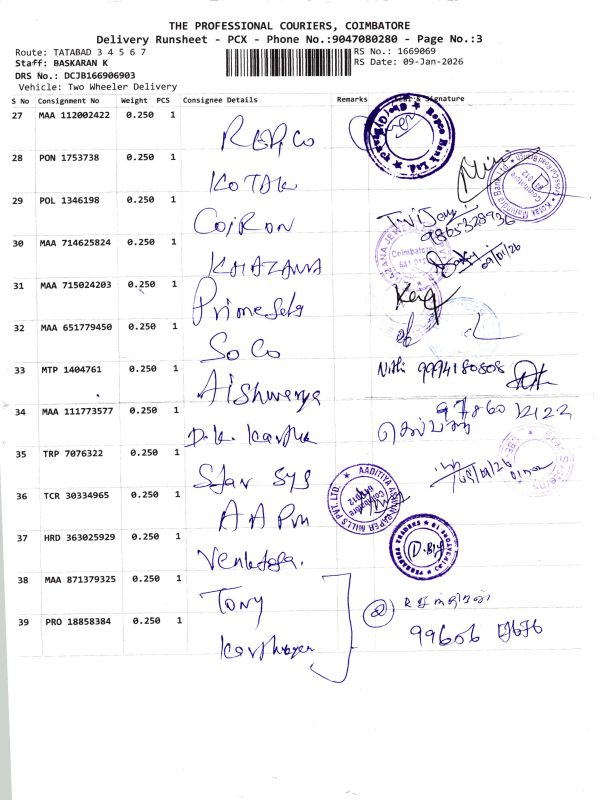 THE PROFESSIONAL COURIERS, COIMBATORE
Delivery Runsheet - PCX - Phone No.:9047080280 - Page No.:3
Route: TATABAD 3 4 5 6 7
RS No.: 1669069
Staff: BASKARAN K
RS Date: 09-Jan-2026
DRS No.: DCJB166906903
Vehicle: Two Wheeler Delivery
S No Consignment No Weight PCS Consignee Details Remarks & Signature
27 MAA 112002422 0.250 1 REPCO
Repco Bank Ltd
28 PON 1753738 0.250 1 KOTAK
Kotak Mahindra Bank Ltd
Coimbatore
29 POL 1346198 0.250 1
9865328936
30 MAA 714625824 0.250 1 KHAZANA
Coimbatore
09/01/26
31 MAA 715024203 0.250 1
32 MAA 651779450 0.250 1 SoCo
33 MTP 1404761 0.250 1 Aishwarya
Nithi 9994180808
34 MAA 111773577 0.250 1 D.K. Kartha
97860 12122
35 TRP 7076322 0.250 1 Star Sys
36 TCR 30334965 0.250 1 AAPM
AADITIYA ASWIN PAPER MILLS PVT. LTD.
Coimbatore
37 HRD 363025929 0.250 1
38 MAA 871379325 0.250 1 Tony
39 PRO 18858384 0.250 1
99606